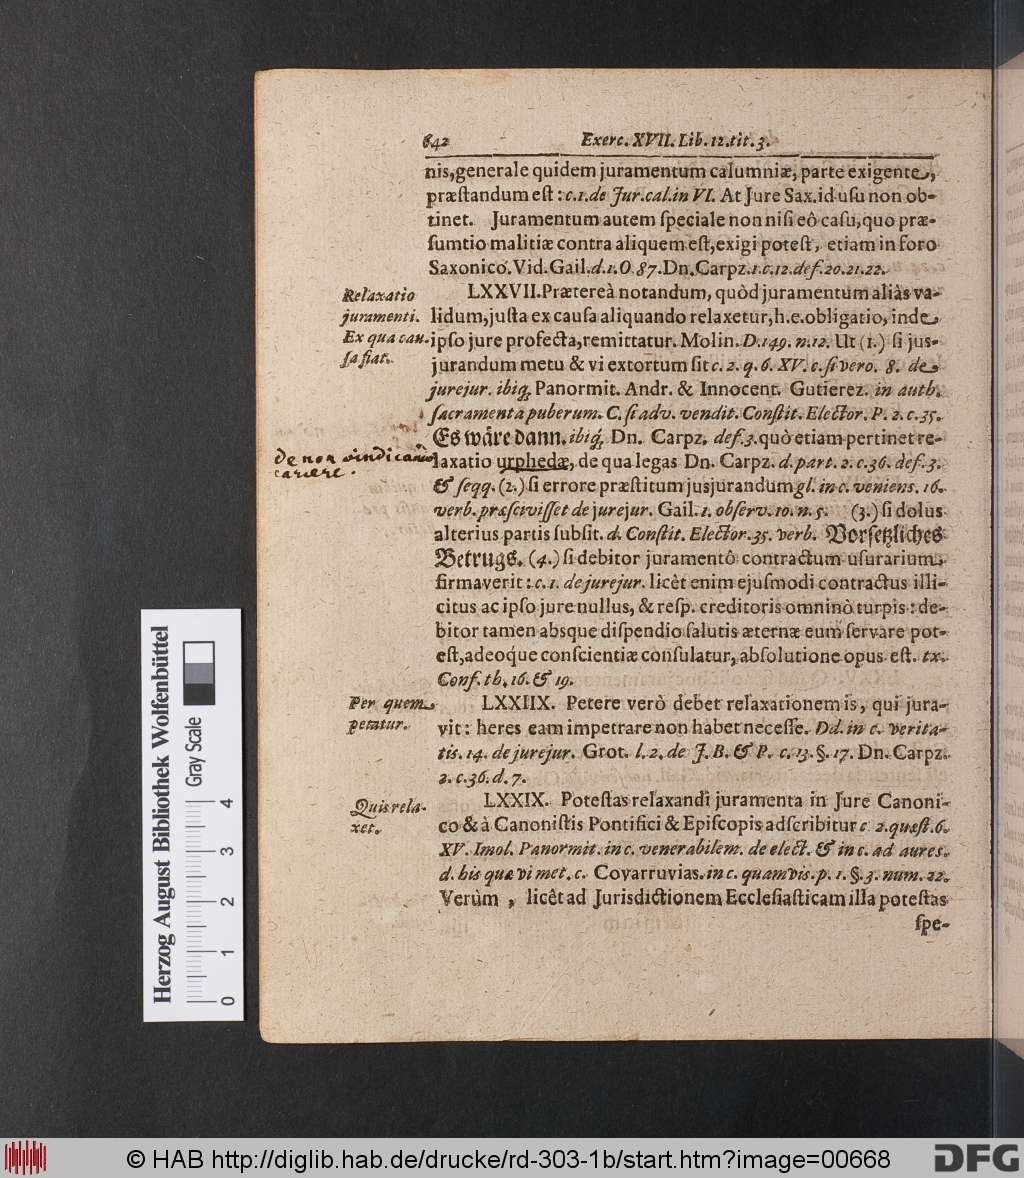 642 Exerc. XVII. Lib. 12. tit. 3.
nis, generale quidem juramentum calumniæ, parte exigente,
præſtandum eſt : c. 1. de Jur. cal. in VI. At Jure Sax. id uſu non ob-
tinet. Juramentum autem ſpeciale non niſi eô caſu, quo præ-
ſumtio malitiæ contra aliquem eſt, exigi poteſt, etiam in foro
Saxonicô. Vid. Gail. d. 1. O. 87. Dn. Carpz. 1. c. 12. def. 20. 21. 22.
Relaxatio
juramenti.
Ex qua cau-
ſa fiat.
LXXVII. Prætereà notandum, quòd juramentum aliàs va-
lidum, juſta ex cauſa aliquando relaxetur, h. e. obligatio, inde
ipſo jure profecta, remittatur. Molin. D. 149. n. 12. Ut (1.) ſi jus-
jurandum metu & vi extortum ſit c. 2. q. 6. XV. c. ſi vero. 8. de
jurejur. ibiq; Panormit. Andr. & Innocent. Gutierez. in auth.
ſacramenta puberum. C. ſi adv. vendit. Conſtit. Elector. P. 2. c. 35.
Es wäre dann. ibiq; Dn. Carpz. def. 3. quò etiam pertinet re-
de non vindicando
carcere.
laxatio urphedæ, de qua legas Dn. Carpz. d. part. 2. c. 36. def. 3.
& ſeqq. (2.) ſi errore præſtitum jusjurandum gl. in c. veniens. 16.
verb. præſciviſſet de jurejur. Gail. 1. obſerv. 10. n. 5. (3.) ſi dolus
alterius partis ſubſit. d. Conſtit. Elector. 35. verb. Vorſetzliches
Betrugs. (4.) ſi debitor juramentô contractum uſurarium
firmaverit : c. 1. de jurejur. licèt enim ejuſmodi contractus illi-
citus ac ipſo jure nullus, & reſp. creditoris omninò turpis : de-
bitor tamen absque diſpendio ſalutis æternæ eum ſervare pot-
eſt, adeoque conſcientiæ conſulatur, abſolutione opus eſt. tx.
Conf. th. 16. & 19.
Per quem
petatur.
LXXIIX. Petere verò debet relaxationem is, qui jura-
vit : heres eam impetrare non habet neceſſe. Dd. in c. verita-
tis. 14. de jurejur. Grot. l. 2. de J. B. & P. c. 13. §. 17. Dn. Carpz.
2. c. 36. d. 7.
Quis rela-
xet.
LXXIX. Poteſtas relaxandi juramenta in Jure Canoni-
co & à Canoniſtis Pontifici & Epiſcopis adſcribitur c 2. quæſt. 6.
XV. Imol. Panormit. in c. venerabilem. de elect. & in c. ad aures.
d. his quæ vi met. c. Covarruvias. in c. quamvis. p. 1. §. 3. num. 22.
Verùm, licêt ad Jurisdictionem Eccleſiaſticam illa poteſtas
ſpe-
Herzog August Bibliothek Wolfenbüttel
Gray Scale
0 1 2 3 4
© HAB http://diglib.hab.de/drucke/rd-303-1b/start.htm?image=00668
DFG